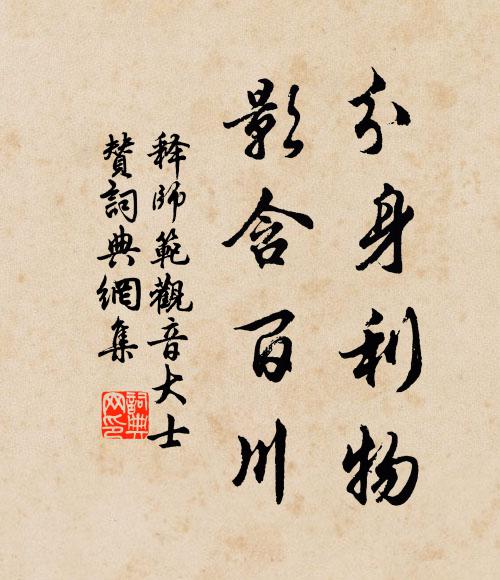 分身利物
影含百川
释師範觀音大士
賛詞典網集
詞典网印